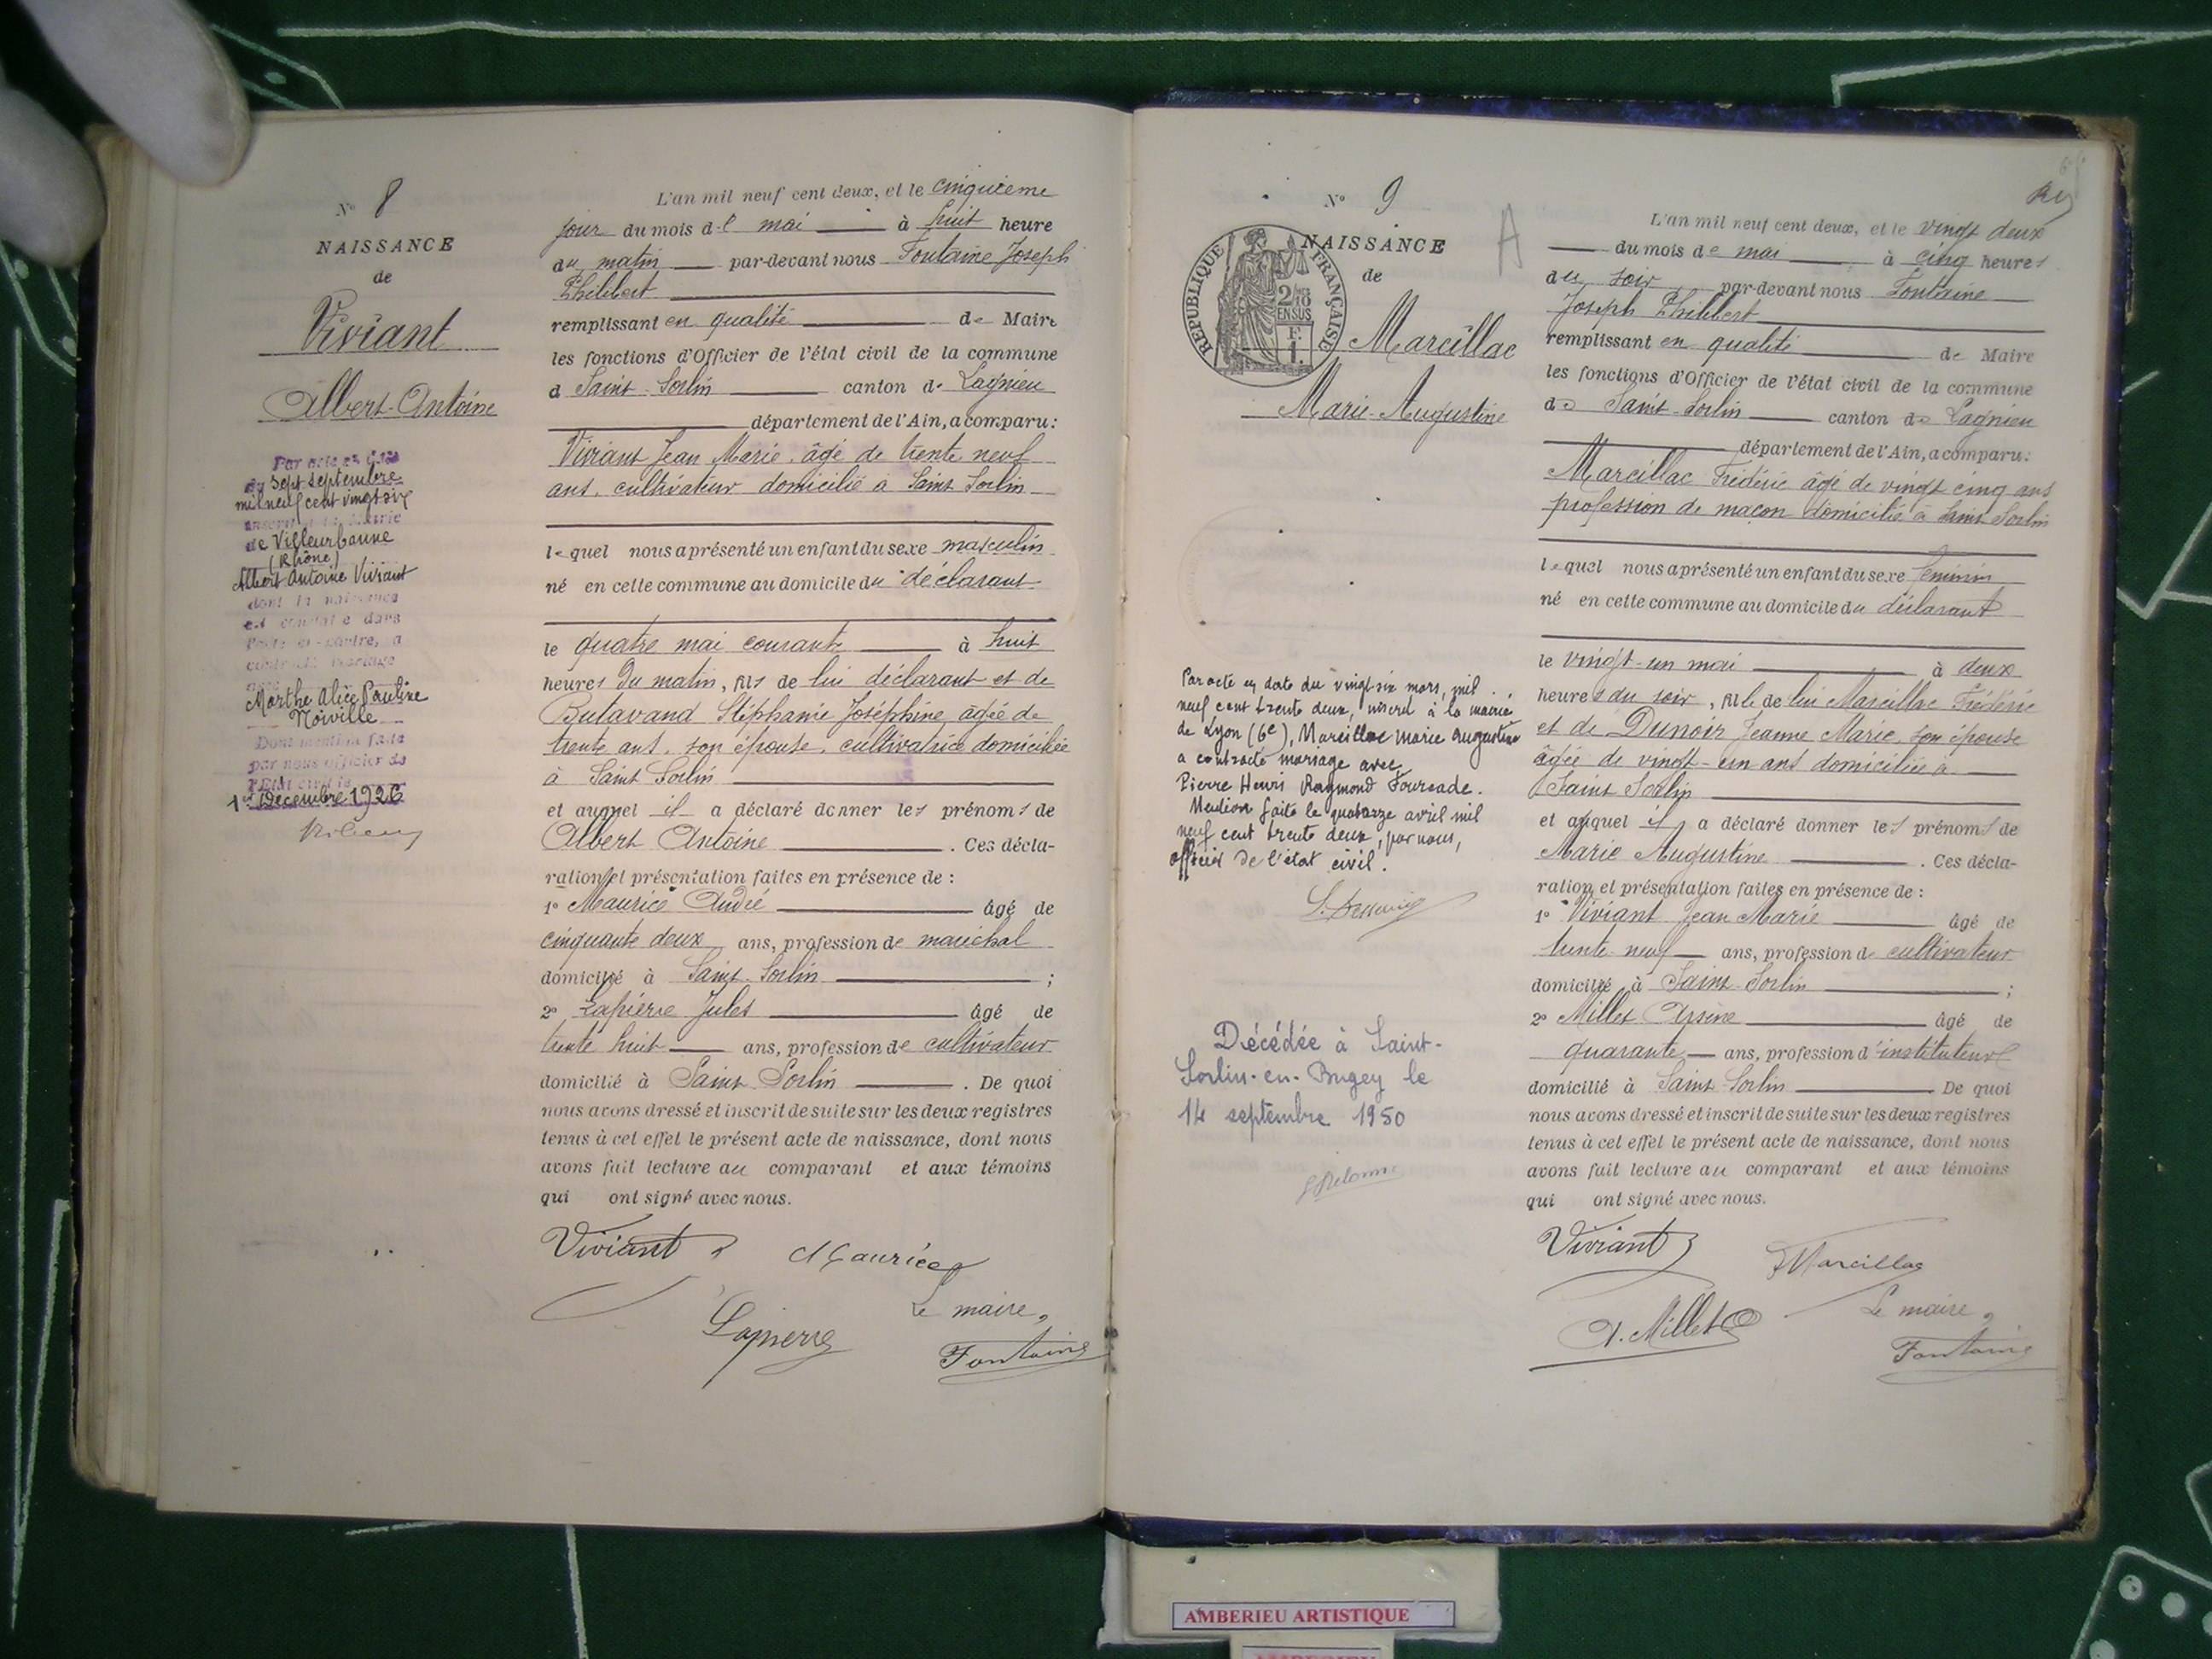 N° 8
NAISSANCE
de
Viviant
Albert-Antoine
Par acte en date
du Sept Septembre
mil neuf cent vingt six
inscrit à la Mairie
de Villeurbanne
(Rhône)
Albert Antoine Viviant
dont la naissance
est constaté dans
l'acte ci-contre, a
contracté mariage
avec
Marthe Alice Pauline
Noiville
Dont mention faite
par nous officier de
l'Etat civil le
1er Décembre 1926
L'an mil neuf cent deux, et le cinquième
jour du mois de mai à huit heure
du matin par-devant nous Fontaine Joseph
Philibert
remplissant en qualité de Maire
les fonctions d'Officier de l'état civil de la commune
d Saint-Sorlin canton de Lagnieu
département de l'Ain, a comparu:
Viviant Jean Marie, âgé de trente neuf
ans, cultivateur domicilié à Saint Sorlin
lequel nous a présenté un enfant du sexe masculin
né en cette commune au domicile du déclarant
le quatre mai courant à huit
heures du matin, fils de lui déclarant et de
Butavand Stéphanie Joséphine, âgée de
trente ans, son épouse, cultivatrice domiciliée
à Saint Sorlin
et auquel il a déclaré donner les prénoms de
Albert Antoine . Ces décla-
ration et présentation faites en présence de :
1° Maurice André âgé de
cinquante deux ans, profession de maréchal
domicilié à Saint-Sorlin ;
2° Lapierre Jules âgé de
trente huit ans, profession de cultivateur
domicilié à Saint Sorlin . De quoi
nous avons dressé et inscrit de suite sur les deux registres
tenus à cet effet le présent acte de naissance, dont nous
avons fait lecture au comparant et aux témoins
qui ont signé avec nous.
Viviant Maurice
Le maire,
Lapierre
Fontaine
N° 9
A
RÉPUBLIQUE FRANÇAISE
2/10 EN SUS
F. 1.
NAISSANCE
de
Marcillac
Marie-Augustine
Par acte en date du vingt-six mars, mil
neuf cent trente deux, inscrit à la mairie
de Lyon (6e), Marcillac Marie Augustine
a contracté mariage avec
Pierre Henri Raymond Foursade.
Mention faite le quatorze avril mil
neuf cent trente deux, par nous,
officier de l'état civil.
Décédée à Saint-
Sorlin-en-Bugey le
14 septembre 1950
L'an mil neuf cent deux, et le vingt deux
du mois de mai à cinq heures
du soir par-devant nous Fontaine
Joseph Philibert
remplissant en qualité de Maire
les fonctions d'Officier de l'état civil de la commune
de Saint-Sorlin canton de Lagnieu
département de l'Ain, a comparu:
Marcillac Frédéric âgé de vingt cinq ans
profession de maçon domicilié à Saint Sorlin
lequel nous a présenté un enfant du sexe féminin
né en cette commune au domicile du déclarant
le vingt-un mai à deux
heures du soir, fille de lui Marcillac Frédéric
et de Dunoir Jeanne Marie, son épouse
âgée de vingt-un ans domiciliée à
Saint Sorlin
et auquel il a déclaré donner les prénoms de
Marie Augustine . Ces décla-
ration et présentation faites en présence de :
1° Viviant Jean Marie âgé de
trente-neuf ans, profession de cultivateur
domicilié à Saint-Sorlin ;
2° Millet Arsène âgé de
quarante ans, profession d'instituteur
domicilié à Saint-Sorlin De quoi
nous avons dressé et inscrit de suite sur les deux registres
tenus à cet effet le présent acte de naissance, dont nous
avons fait lecture au comparant et aux témoins
qui ont signé avec nous.
Viviant
F Marcillac
Le maire,
A. Millet
Fontaine
AMBERIEU ARTISTIQUE